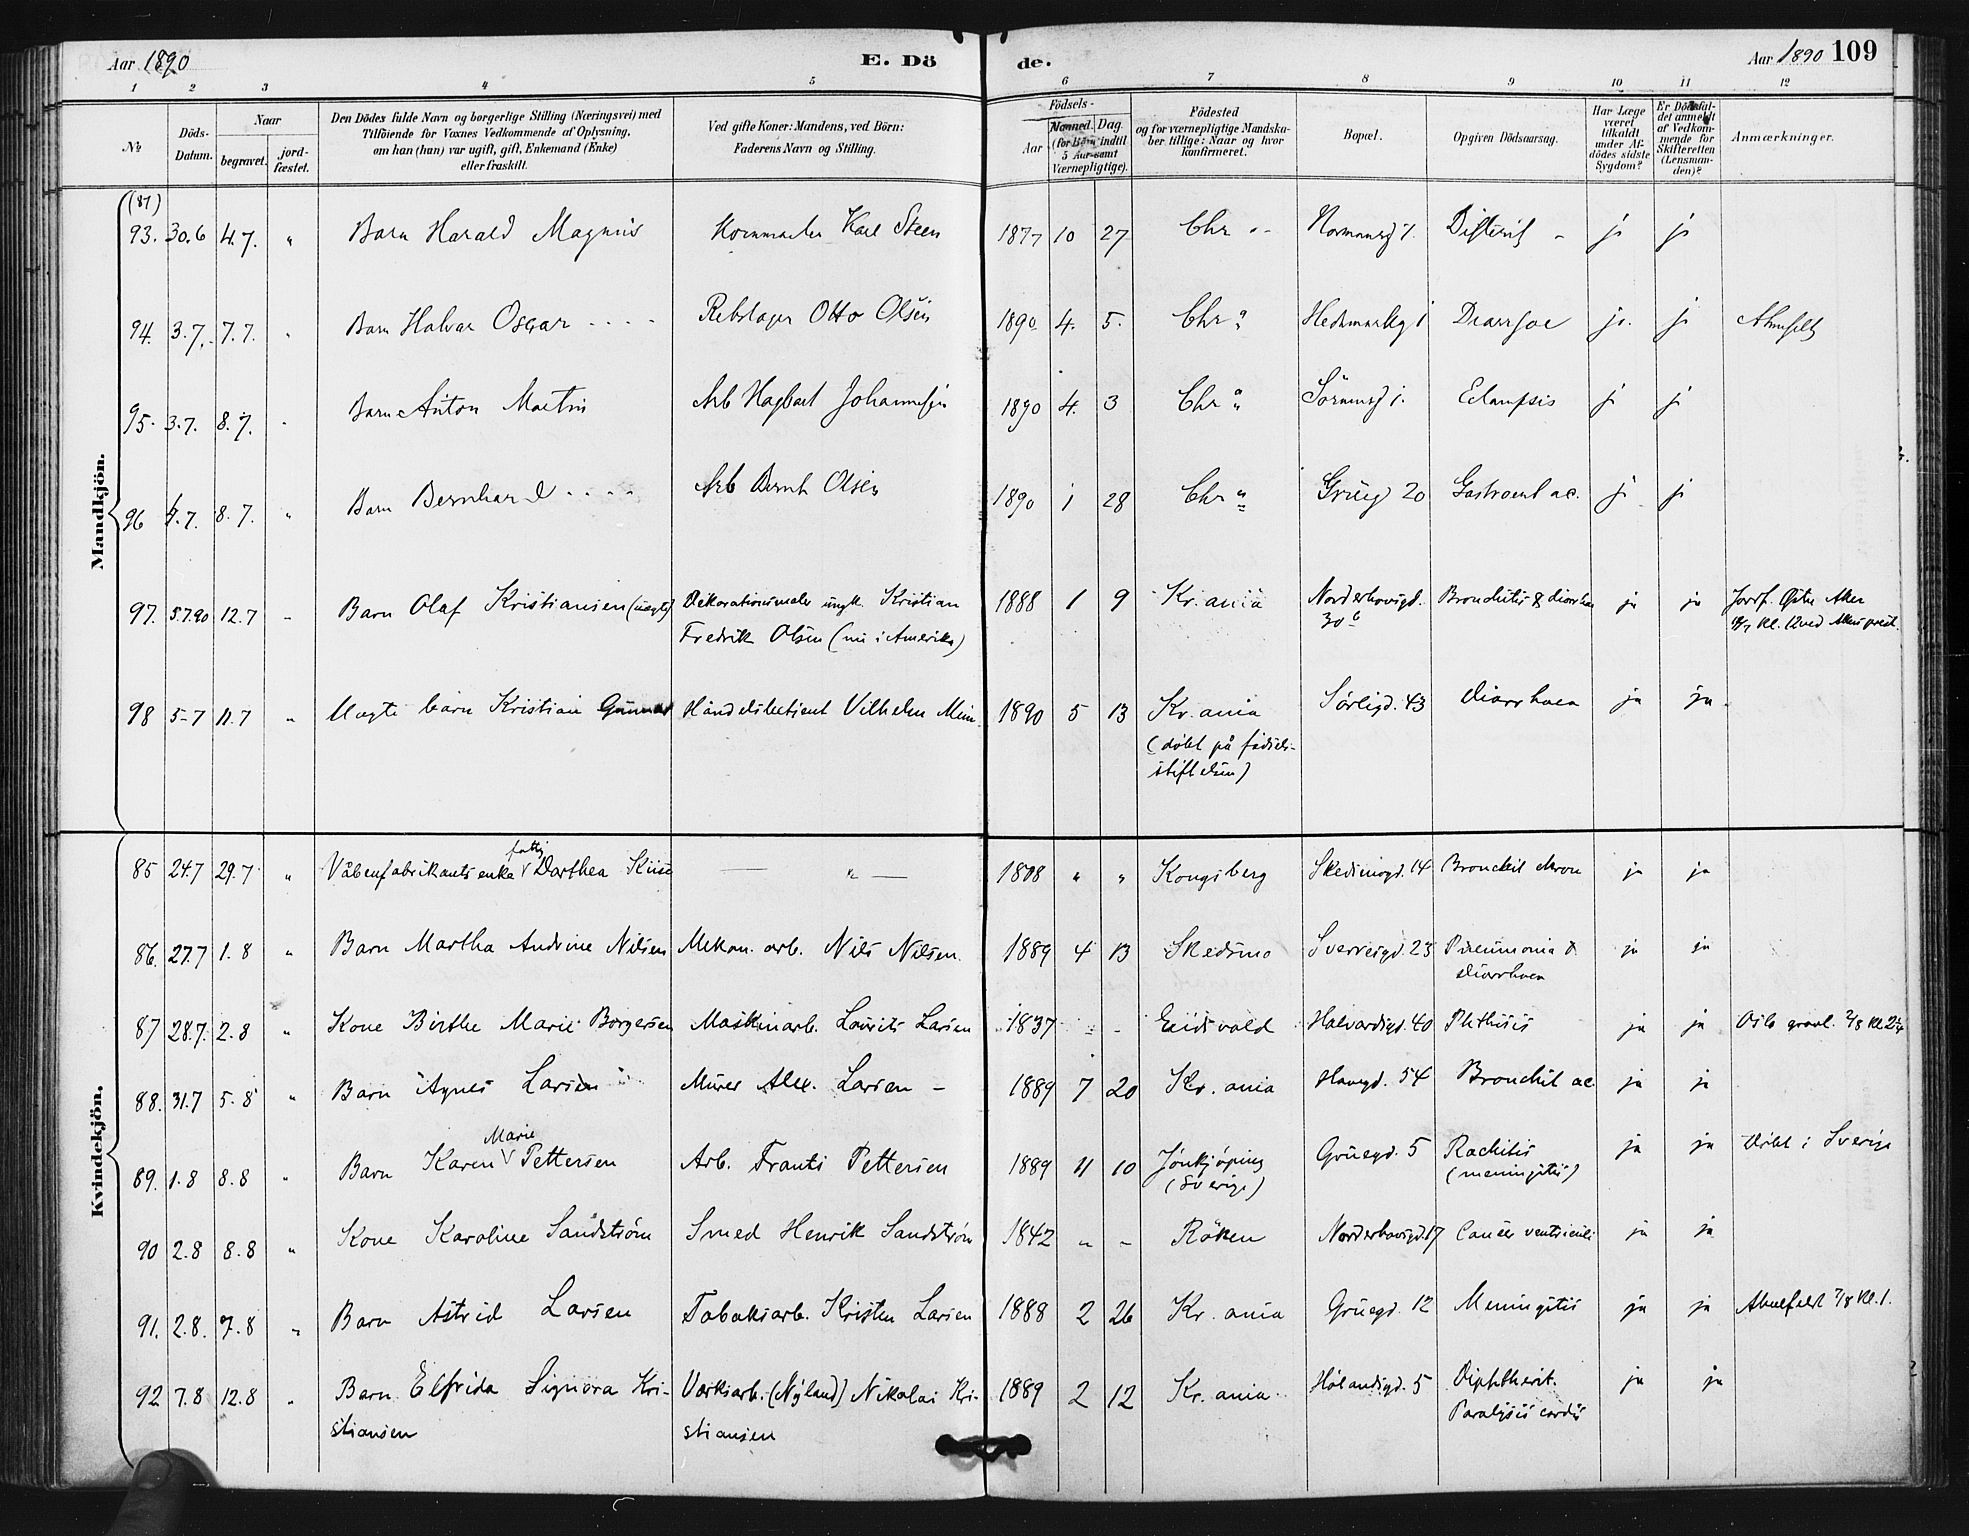 Aar 1890
E. Dö
de.
Aar 1890 109
1 2 3 4 5 6 7 8 9 10 11 12
No
Döds-
Datum.
Naar
begravet.
jord-
fæstet.
Den Dödes fulde Navn og borgerlige Stilling (Næringsvei) med
Tilföiende for Voxnes Vedkommende af Oplysning,
om han (hun) var ugift, gift, Enkemand (Enke)
eller fraskilt.
Ved gifte Koner: Mandens, ved Börn:
Faderens Navn og Stilling.
Födsels-
Aar
Maaned. Dag.
(for Börn indtil
5 Aar samt
Værnepligtige).
Födested
og for værnepligtige Mandska-
ber tillige: Naar og hvor
konfirmeret.
Bopæl.
Opgiven Dödsaarsag.
Har Læge
været
tilkaldt
under Af-
dödes sidste
Sygdom?
Er Dödsfal-
det anmeldt
af Vedkom-
mende for
Skifteretten
(Lensman-
den)?
Anmærkninger.
Mandkjön.
(87)
93. 30.6 4.7. " Barn Harald Magnus Karl Steen 1877 10 27 Chr " Difterit ja ja
94. 3.7. 7.7. " Barn Halvar Oscar Rebslager Otto Olsen 1890 4. 5. Chr " Hedemarkg 1 Diarrhoe ja ja
95. 3.7. 8.7. " Barn Anton Martin Arb Hagbart Johannesen 1890 4. 3 Chr " Eclampsis ja ja
96 4.7. 8.7. " Barn Bernhard Arb Bernh Olsen 1890 1 28 Chr " Grüeg 20 Gastroent ac. ja ja
97. 5.7.90 12.7 " Barn Olaf Kristiansen (uægte) Dekorationsmaler ungk. Kristian
Fredrik Olsen (nu i Amerika) 1888 1 9 Kr.ania Norderhovsgd.
30 b Bronchitis & diarrhoe ja ja Jordf. Østre Aker
kl. 12 ved Akers præst.
98 5-7 11.7 " Uægte barn Kristian Gunnar Handelsbetjent Vilhelm 1890 5 13 Kr.ania
(døbt på fødsels-
stiftelsen) Sørligd. 43 Diarrhoea ja ja
Kvindekjön.
85 24.7 29.7 " Våbenfabrikants enke fattig Dorthea — " — 1808 " " Kongsberg Skedsmogd. 14 Bronchit chron ja ja
86. 27.7 1.8 " Barn Martha Andrine Nilsen Mekan. arb. Nils Nilsen. 1889 4 13 Skedsmo Sverresgd. 23 Pneumonia &
diarrhoea ja ja
87 28.7. 2.8 " Kone Birthe Marie Borgersen Maskinarb. Lauritz Larsen 1837 - - Eidsvold Halvardsgd. 40 Phthisis ja ja Oslo gravl. 2/8
88. 31.7 5.8 " Barn Agnes Larsen Murer Alex. Larsen - 1889 7 20 Kr.ania Havegd. 54 Bronchit ac ja ja
89. 1.8 8.8 " Barn Karen Marie Pettersen Arb. Frants Pettersen 1889 11 10 Jönkjöping
(Sverige) Grüegd. 5 Rachitis
(meningitis) ja ja Döbt i Sverige
90 2.8 8.8 " Kone Karoline Sandström Smed Henrik Sandström 1842 " - Röken Norderhovsgd. 17 Cancer ventriculi ja ja
91. 2.8. 7.8 " Barn Astrid Larsen Tobaksarb. Kristen Larsen 1888 2 26 Kr.ania Grüegd. 12 Meningitis ja ja 7/8 kl. 1.
92 7.8 12.8 " Barn Elfrida Signora Kri-
stiansen Værksarb. (Nyland) Nikolai Kri-
stiansen 1889 2 12 Kr.ania Hölandsgd. 5 Diphtherit.
Paralysis cordis ja ja